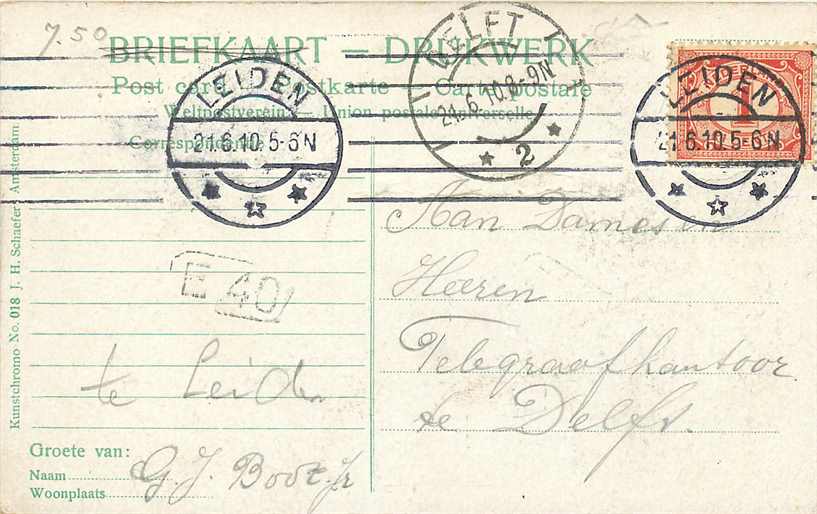 7.50
BRIEFKAART — DRUKWERK
Post card Postkarte Carte postale
Weltpostverein. — Union postale universelle.
Correspondentie
LEIDEN
21.6.10.5-6N
DELFT
21.6.10.8-9N
2
LEIDEN
21.6.10.5-6N
1
Aan Dames en
Heeren
Telegraafkantoor
te Delft.
E 40
te Leiden
Groete van:
Naam G. J. Boot Jr
Woonplaats
Kunstchromo No. 018 J. H. Schaefer, Amsterdam.